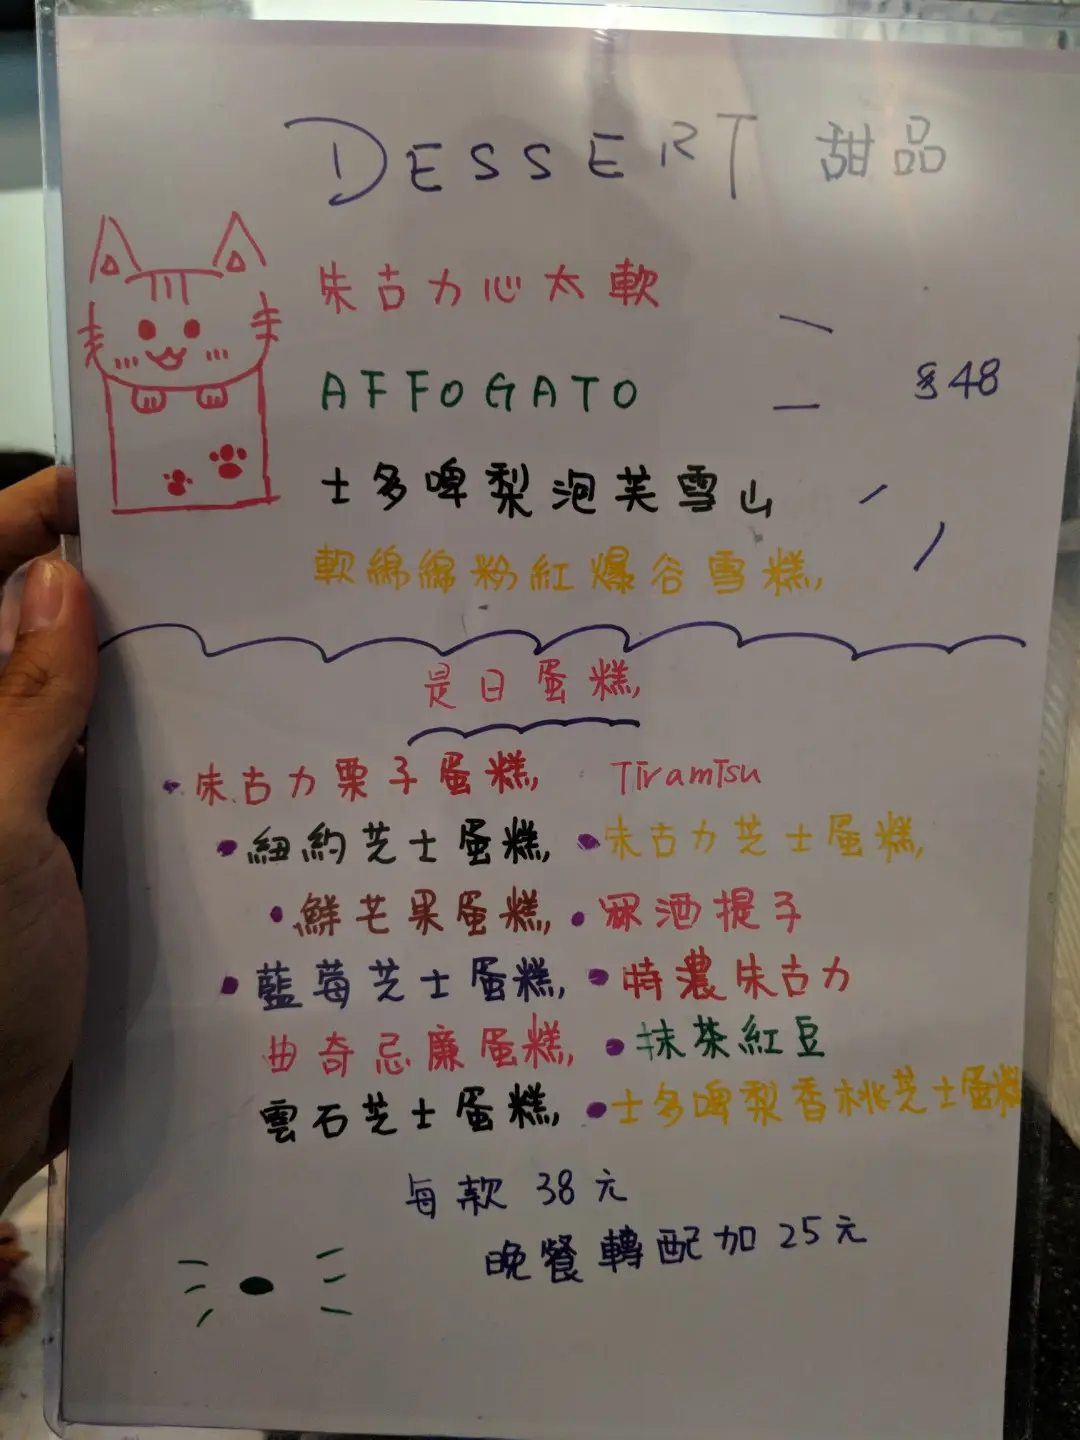 DESSERT 甜品
朱古力心太軟
AFFOGATO
$48
士多啤梨泡芙雪山
軟綿綿粉紅爆谷雪糕
是日蛋糕
朱古力栗子蛋糕 Tiramisu
紐約芝士蛋糕 朱古力芝士蛋糕
鮮芒果蛋糕 冧酒提子
藍莓芝士蛋糕 特濃朱古力
曲奇忌廉蛋糕 抹茶紅豆
雲石芝士蛋糕 士多啤梨香桃芝士蛋糕
每款 38 元
晚餐轉配加 25 元